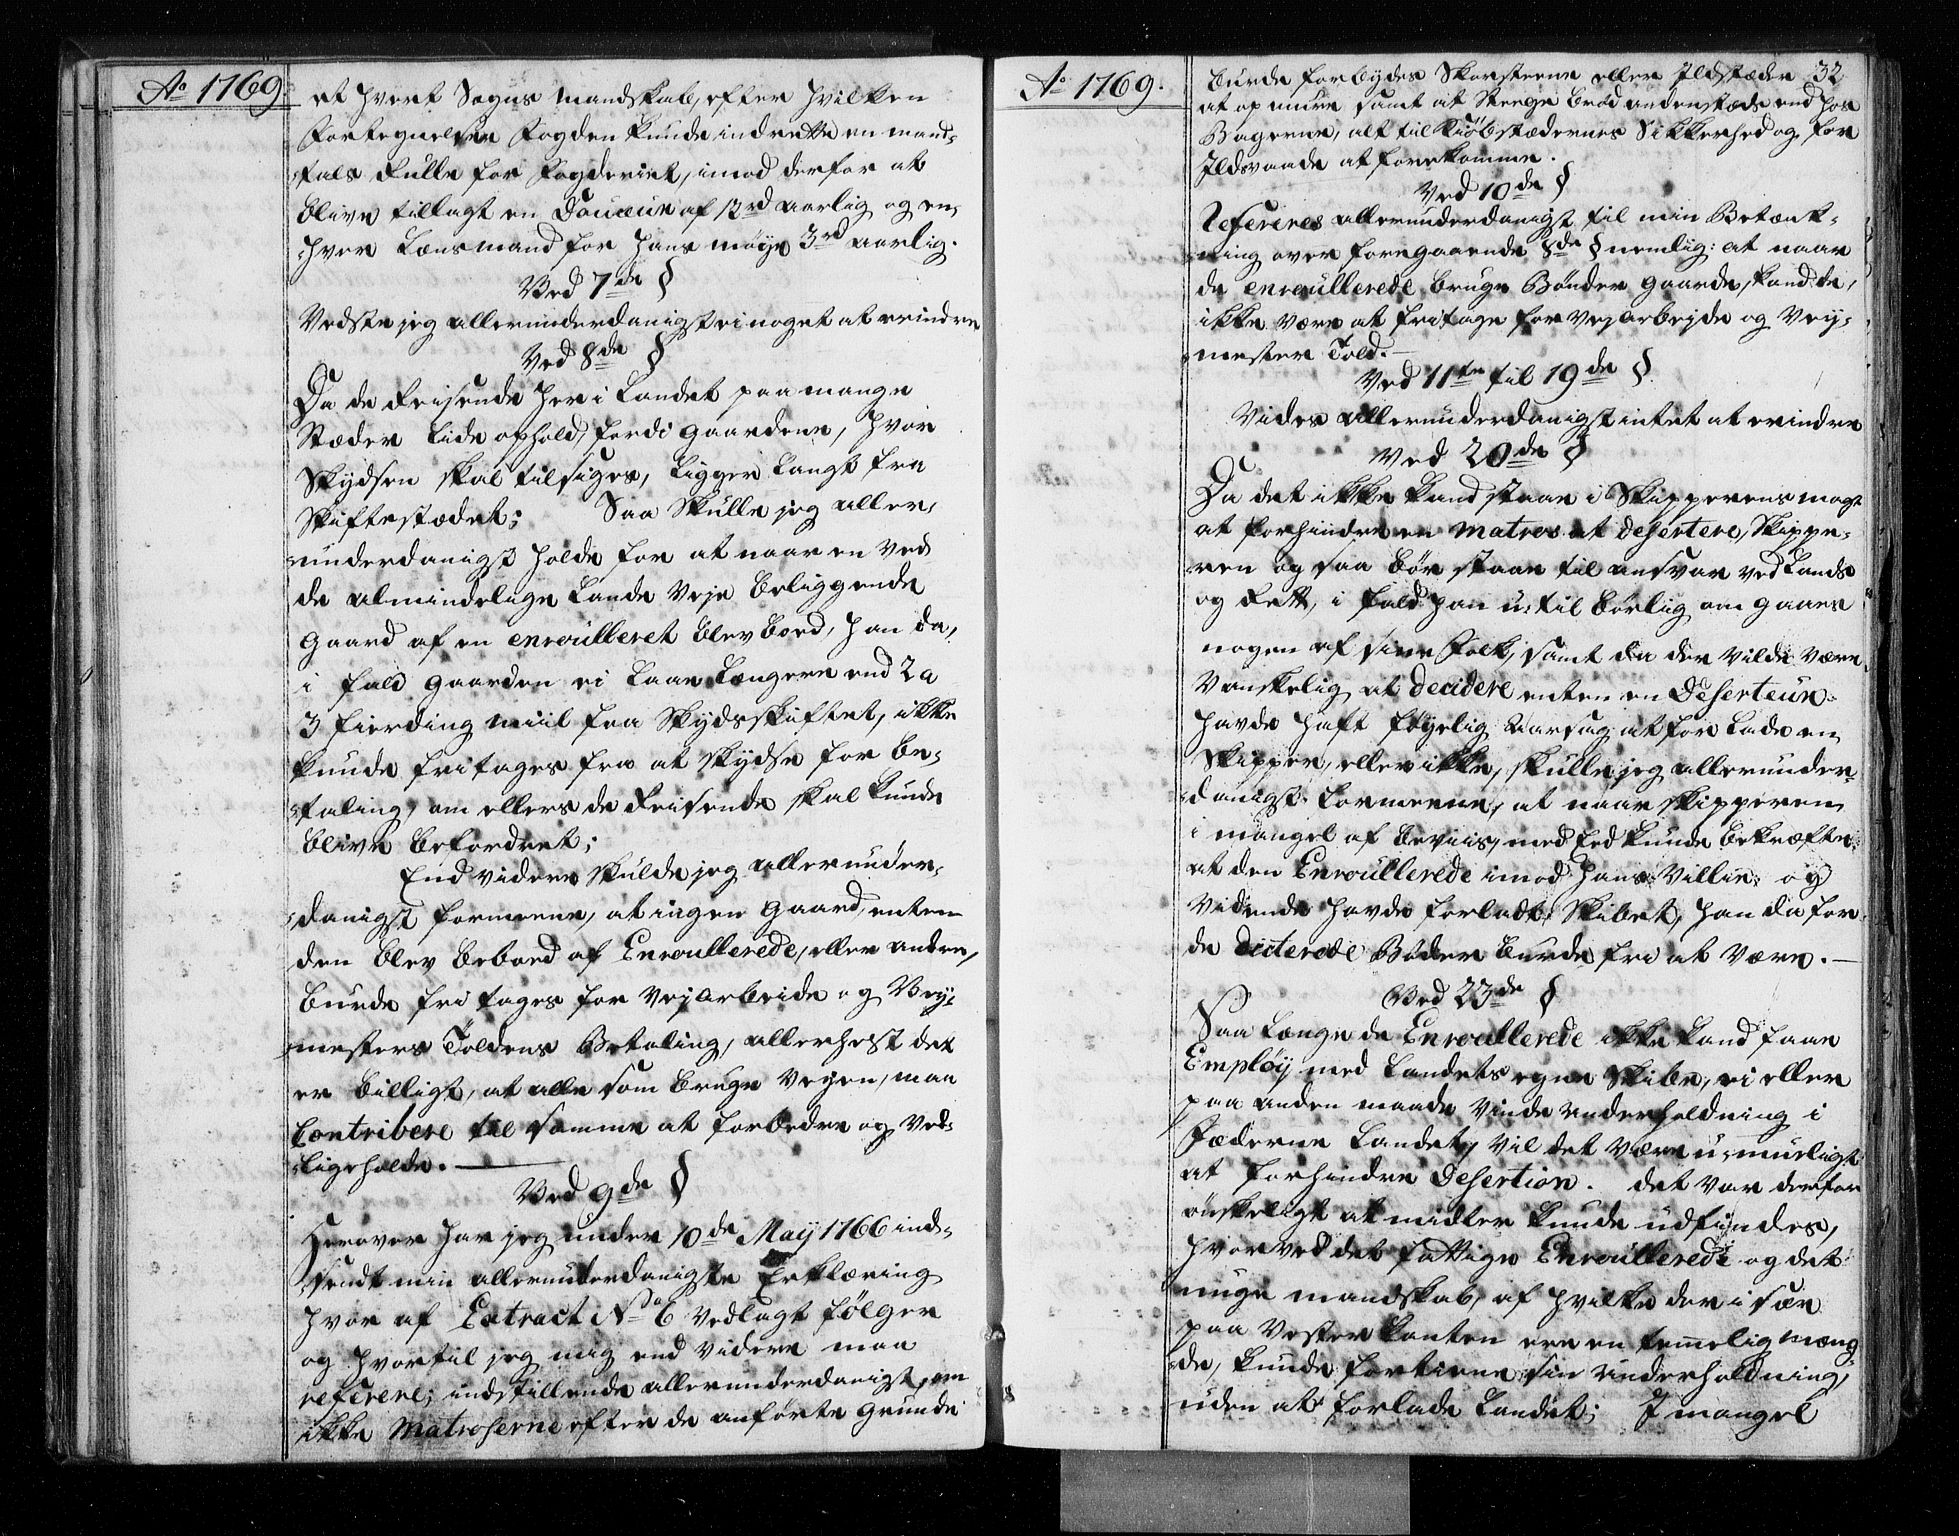 Ao 1769.
et hvert Sogns Mandskab, efter hvilken
Fortegnelse Fogden kunde indrette en mand-
tals Rulle for Fogderiet, imod derfor at
blive tillagt en Douceur af 12 rd aarlig og en-
hver Lænsmand for hans møye 3 rd aarlig.
Ved 7de §
Vedste jeg allerunderdanigst ei noget at erindre
Ved 8de §
Da de Reisende her i Landet paa mange
Stæder lide ophold, fordi gaardene, hvor
Skydsen skal tilsiges, ligger langt fra
Skiftestædet; Saa Skulle jeg aller-
underdanigst holde for at naar en ved
de almindelige Lande Veje beliggende
gaard af en enroulleret blev boed, han da,
i fald gaarden ei laae længere end 2 a
3 fierding miil fra Skydsskiftet, ikke
kunde fritages fra at skydse for be-
taling, om ellers de Reisende skal kunde
blive befordret;
End videre Skulde jeg allerunder-
danigst formeene, at ingen gaard, enten
den blev beboed af Enroullerede, eller andre,
burde fritages for Vejarbeide og Vey-
mesters Toldens Betaling, allerhelst det
er billigt, at alle som bruge Veyen, maa
Contribere til samme at forbedre og ved-
ligeholde.
Ved 9de §
Herover har jeg under 10de May 1766 ind-
sendt min allerunderdanigste Erklæring
hvor af Extract No 6 vedlagt følger
og hvortil jeg mig end videre maa
referere; indstillende allerunderdanigst, om
ikke Matroserne efter de anførte Grunde
Ao 1769.
32
burde forbydes Skorsteene eller Ildstæder
at op mure samt at Steege brød andenstæds end hos
Bagerne, alt til Kiøbstædernes Sikkerhed og for
Ildsvaade at forekomme.
Ved 10de §
Refereres allerunderdanigst til min Betænk-
ning over foregaaende 8de § nemlig: at naar
de enroullerede bruge Bønder gaarde, kand de,
ikke være at fritage for Vejarbejde og Vey-
mester Told.
Ved 11te til 19de §.
Vides allerunderdanigst intet at erindre
Ved 20de §
Da det ikke kand staae i Skipperens magt
at forhindre en Matros at desertere, Skippe-
ren og saa bør staae til ansvar ved Lands
og Rett, i fald han u-tilbørlig om gaaes
nogen af sine Folk, samt da der vilde være
Vanskelig at decidere enten en Deserteur
havde haft føyelig Aarsag at for lade en
Skipper, eller ikke, skulle jeg allerunder-
danigst formeene, at naar skipperen
i mangel af beviis, med Eed kunde bekræfte
at den Enroullerede imod hans Villie og
vidende havde forladt Skibet, han da for
de dicterede Bøder burde fri at være.
Ved 23de §
Saa længe de Enroullerede ikke kand faae
Employ med Landets egne Skibe, ei eller
paa anden maade vinde underholdning i
Fæderne Landet, vil det være u-mueligt
at forhindre Desertion. Det var derfor
ønskeligt at midler kunde udfindes,
hvorved det fattige Enroullerede og det
unge mandskab, af hvilke der i sær
paa Vesterkanten ere en temmelig mæng-
de, kunde fortiene sin underholdning,
uden at forlade Landet; I mangel